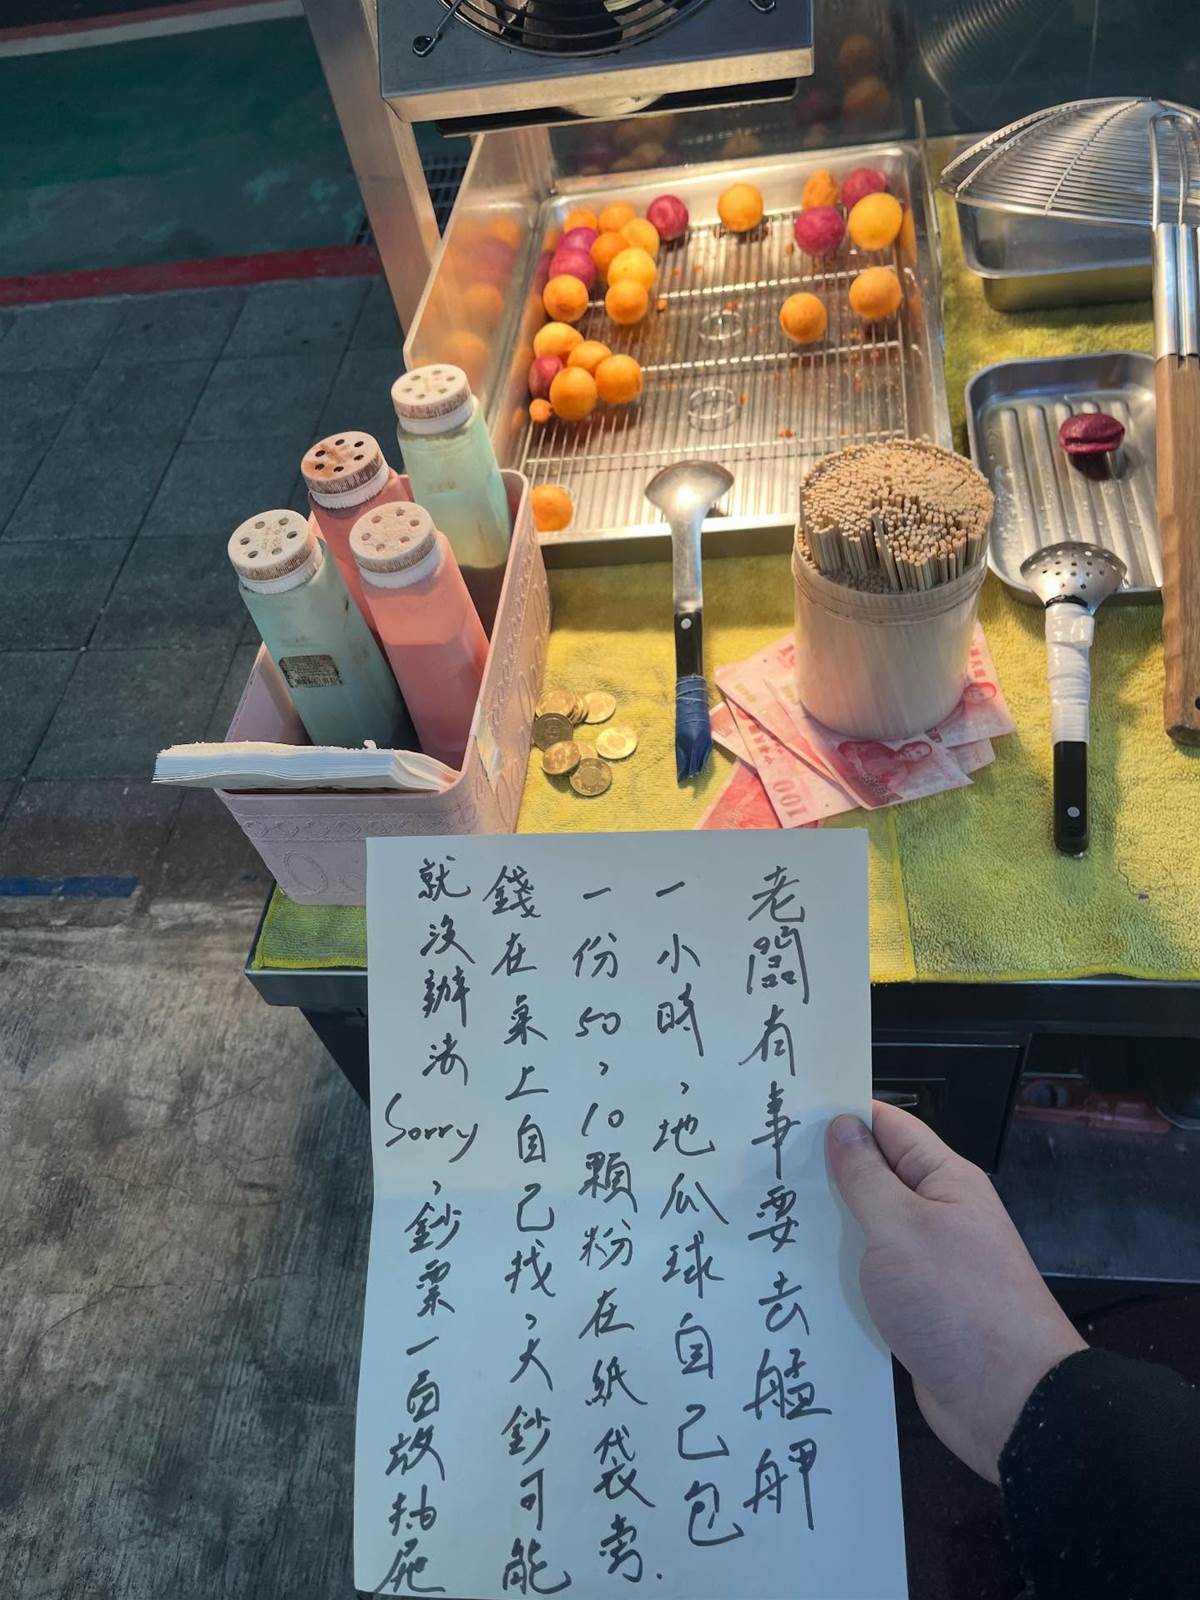 老闆有事要去艋舺
一小時，地瓜球自己包
一份50，10顆粉在紙袋旁.
錢在桌上自己找，大鈔可能
就沒辦法Sorry，鈔票一百放抽屜
100